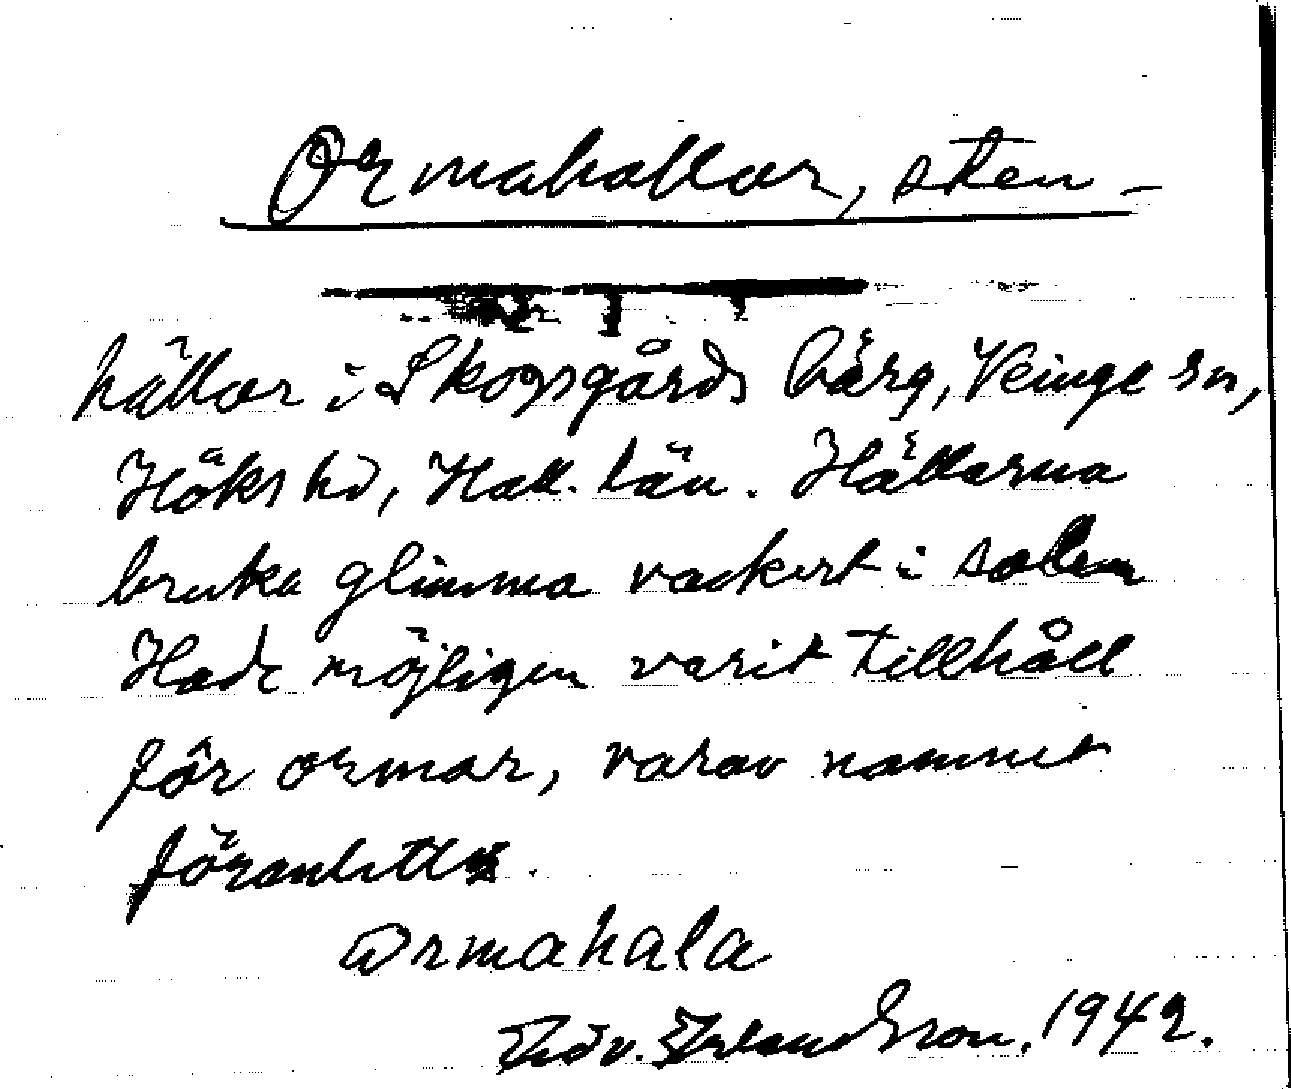 Ormahallar, sten-
hällar i Skogsgårds bärg, Veinge sn,
Höks hd, Hall. län. Hällarna
bruka glimma vackert i solen
Hade möjligen varit tillhåll
för ormar, varav namnet
föranletts.
Ormahala
Edv. Erlandsson. 1942.